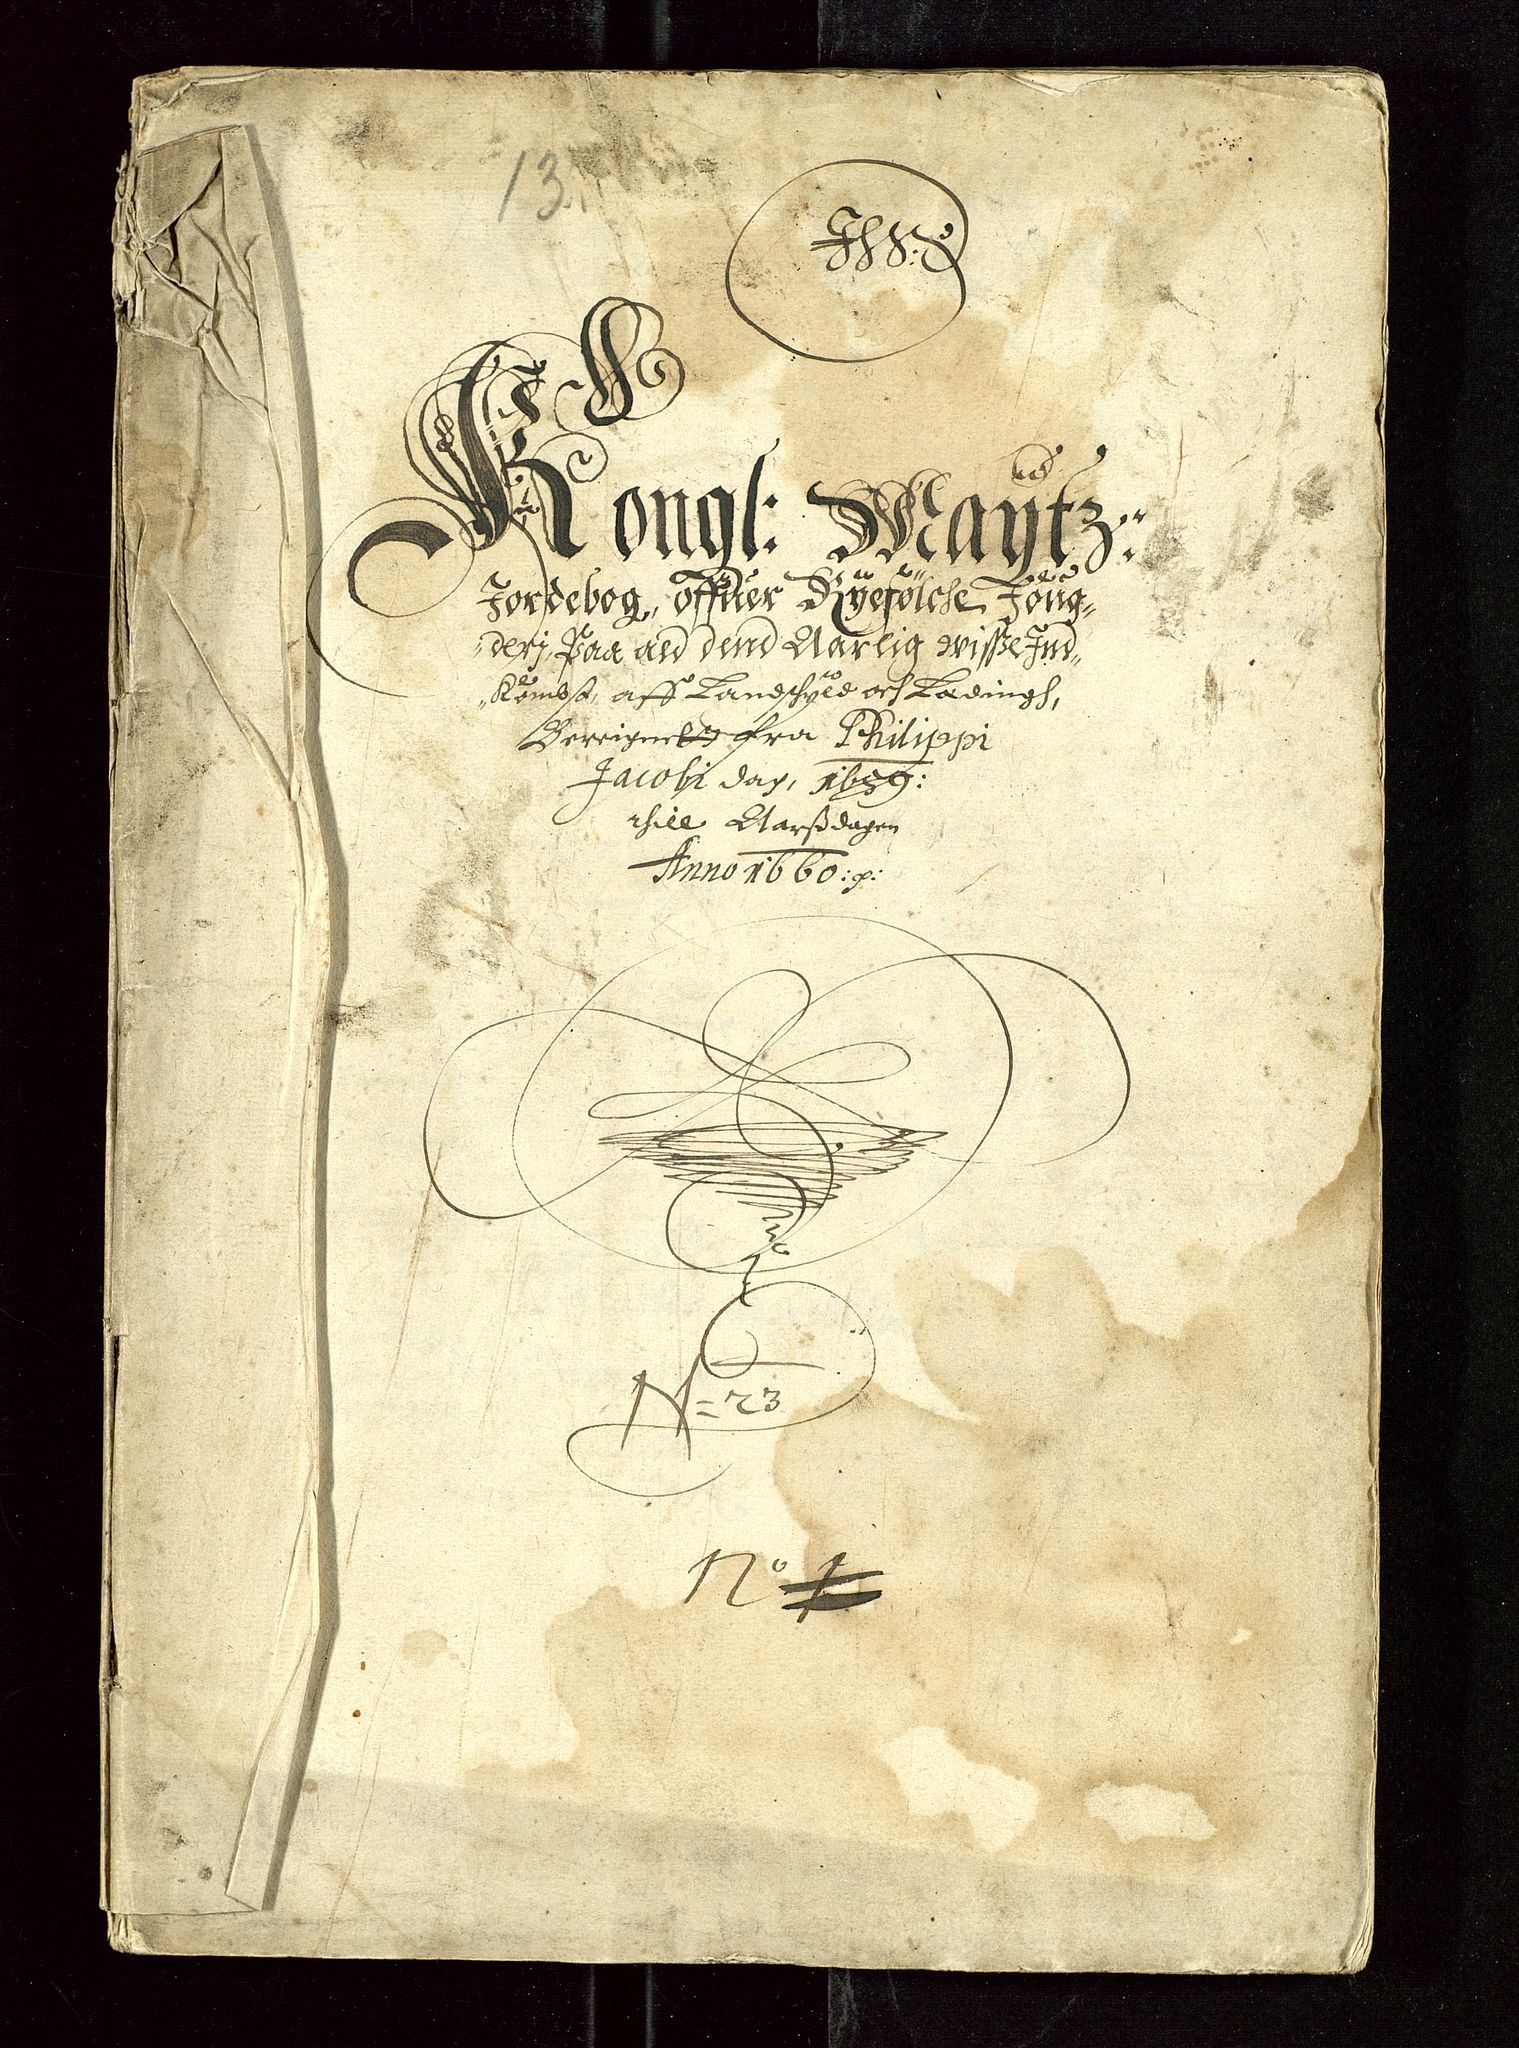 13.
Kongl: Maÿtz:
Jordebog, offuer Ryefölche Fóug-
derj, Paa ald dend Aarlig wisse Ind-
Kombst, aff Landschyld och Leedingh,
Berreignett fra Philippi
Jacobi dag, 1659:
thill Aarßdagen
Anno 1660:p:
N=23
No 1